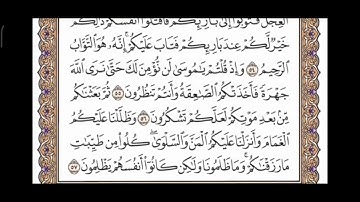 ٱلْعِجْلَ فَتُوبُوٓا۟ إِلَىٰ بَارِئِكُمْ فَٱقْتُلُوٓا۟ أَنفُسَكُمْ ذَٰلِكُمْ
خَيْرٌ لَّكُمْ عِندَ بَارِئِكُمْ فَتَابَ عَلَيْكُمْ ۚ إِنَّهُۥ هُوَ ٱلتَّوَّابُ
ٱلرَّحِيمُ ٥٤ وَإِذْ قُلْتُمْ يَٰمُوسَىٰ لَن نُّؤْمِنَ لَكَ حَتَّىٰ نَرَى ٱللَّهَ
جَهْرَةً فَأَخَذَتْكُمُ ٱلصَّٰعِقَةُ وَأَنتُمْ تَنظُرُونَ ٥٥ ثُمَّ بَعَثْنَٰكُم
مِّنۢ بَعْدِ مَوْتِكُمْ لَعَلَّكُمْ تَشْكُرُونَ ٥٦ وَظَلَّلْنَا عَلَيْكُمُ
ٱلْغَمَامَ وَأَنزَلْنَا عَلَيْكُمُ ٱلْمَنَّ وَٱلسَّلْوَىٰ ۖ كُلُوا۟ مِن طَيِّبَٰتِ
مَا رَزَقْنَٰكُمْ ۖ وَمَا ظَلَمُونَا وَلَٰكِن كَانُوٓا۟ أَنفُسَهُمْ يَظْلِمُونَ ٥٧